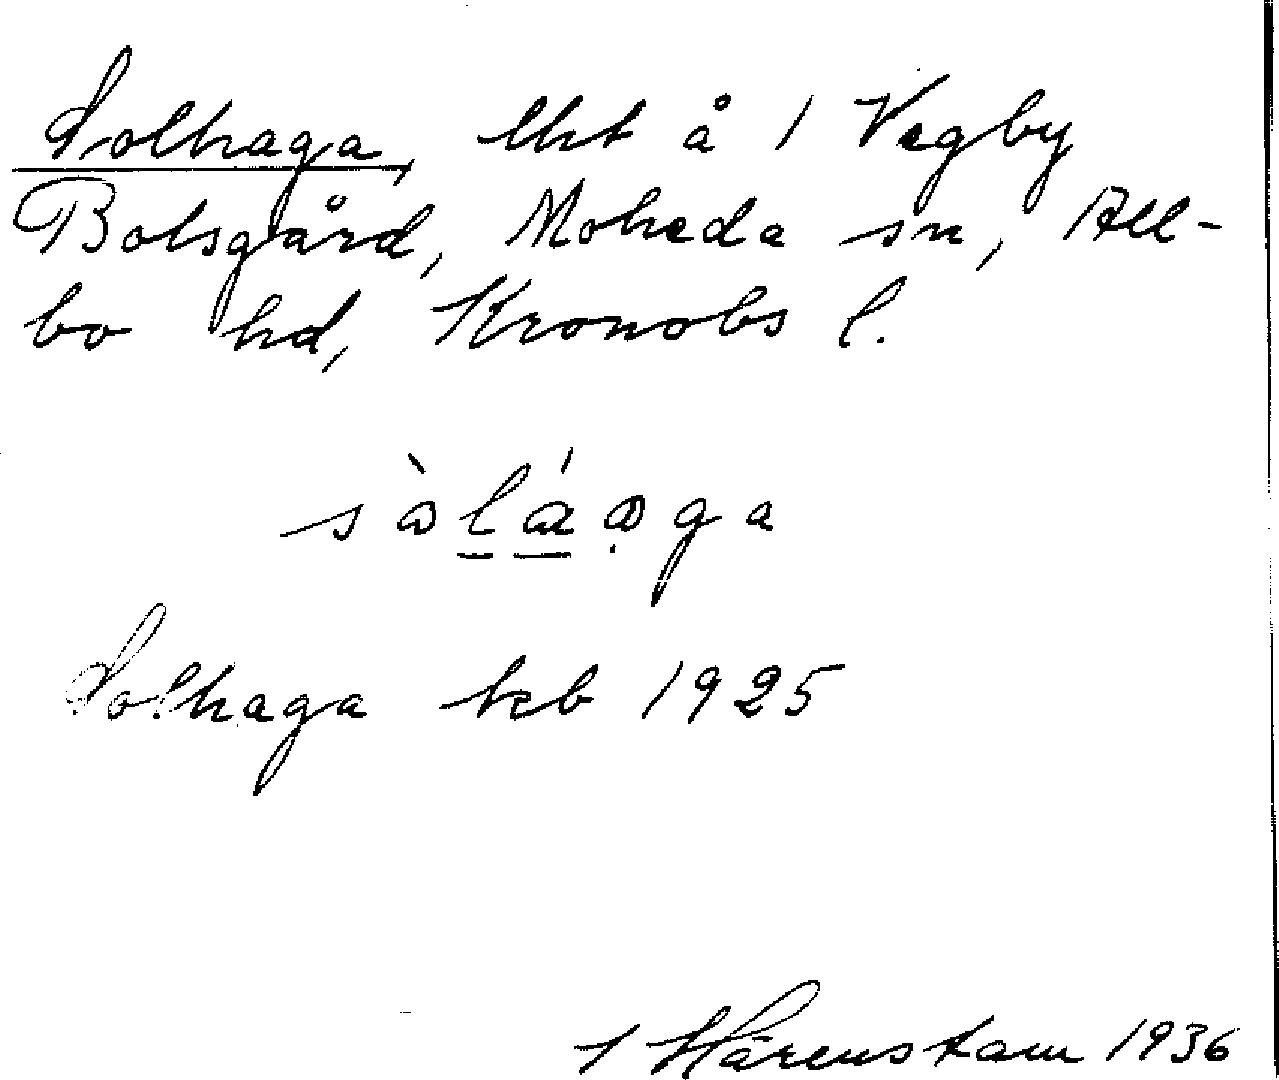 Solhaga, lht å 1 Vegby
Bolsgård, Moheda sn, All-
bo hd, Kronobs l.
Solhaga kb 1925
Härenstam 1936